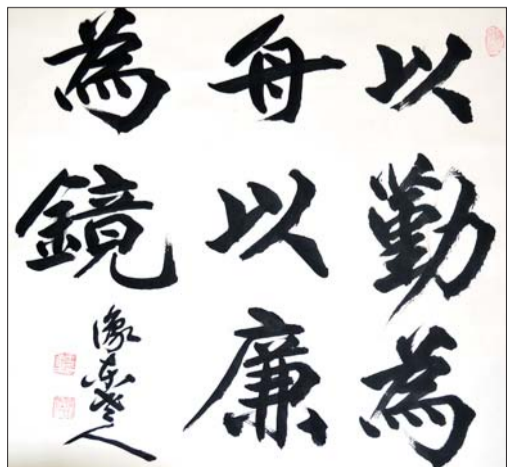 以勤為
舟以廉
為鏡